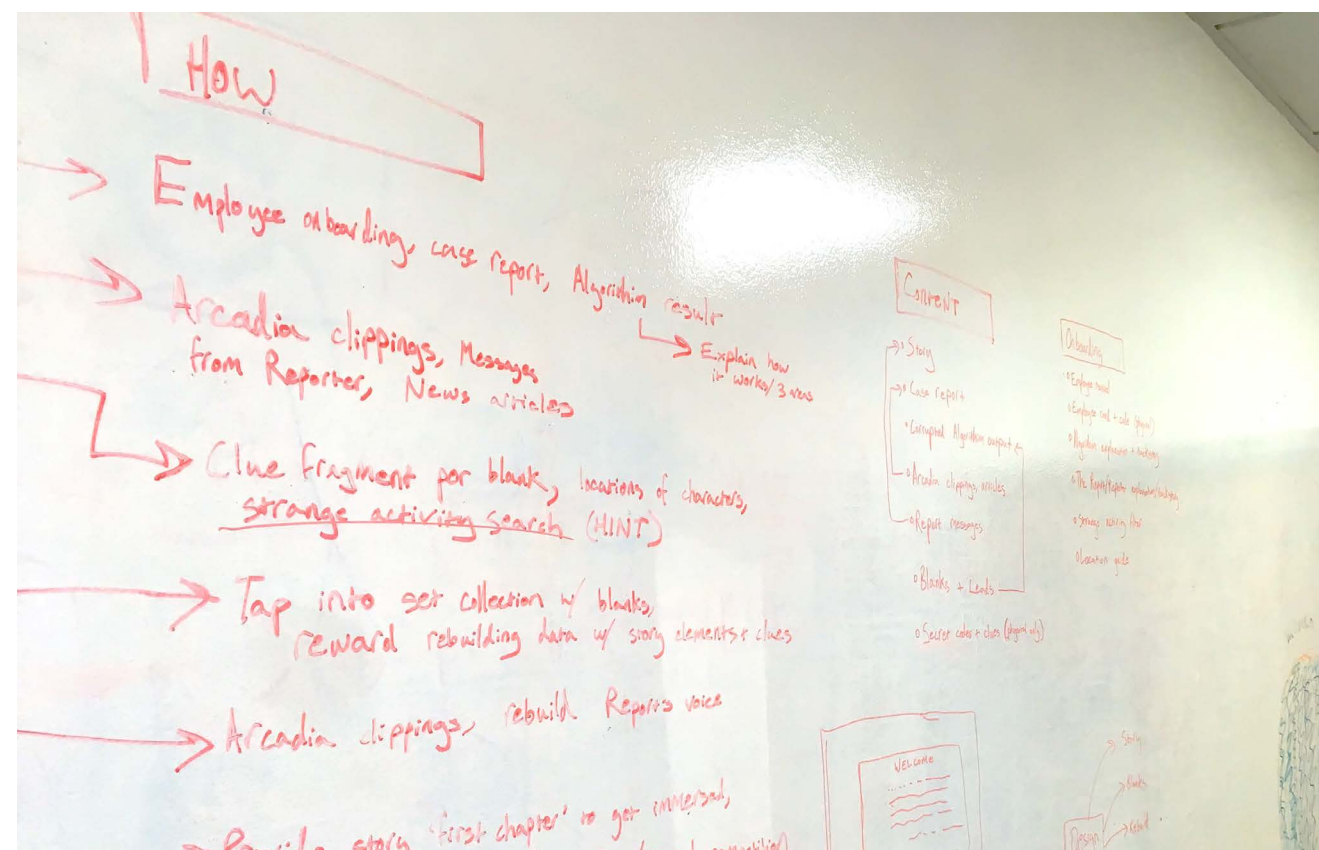 How
Employee onboarding, case report, Algorithim result
Explain how
it works/3 areas
Arcadia clippings, Messages
from Reporter, News articles
Clue fragment per blank, locations of characters,
strange activity search (HINT)
Tap into set collection w/ blanks,
reward rebuilding data w/ story elements + clues
Arcadia clippings, rebuild Reports voice
Provide story 'first chapter' to get immersed,
Content
Story
Case report
Corrupted Algorithm output
Arcadia clippings, articles
Report messages
Blanks + Leads
Secret codes + clues (physical only)
Onboarding
Employee manual
Employee card + code (physical)
Algorithm explanation + backstory
The Report/Reporter explanation/backstory
Strange activity filter
Location guide
WELCOME
Design
Story
Blanks